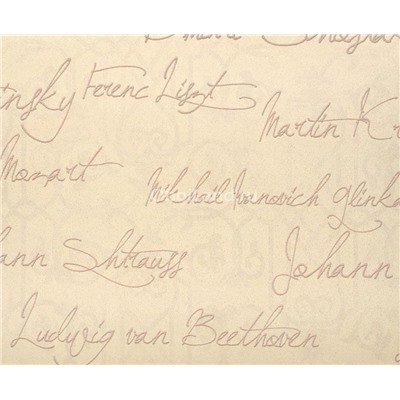 insky Ferenc Liszt
Martin Kr
Mozart
Mikhail Ivanovich Glinka
ann Shtrauss
Johann
Ludwig van Beethoven